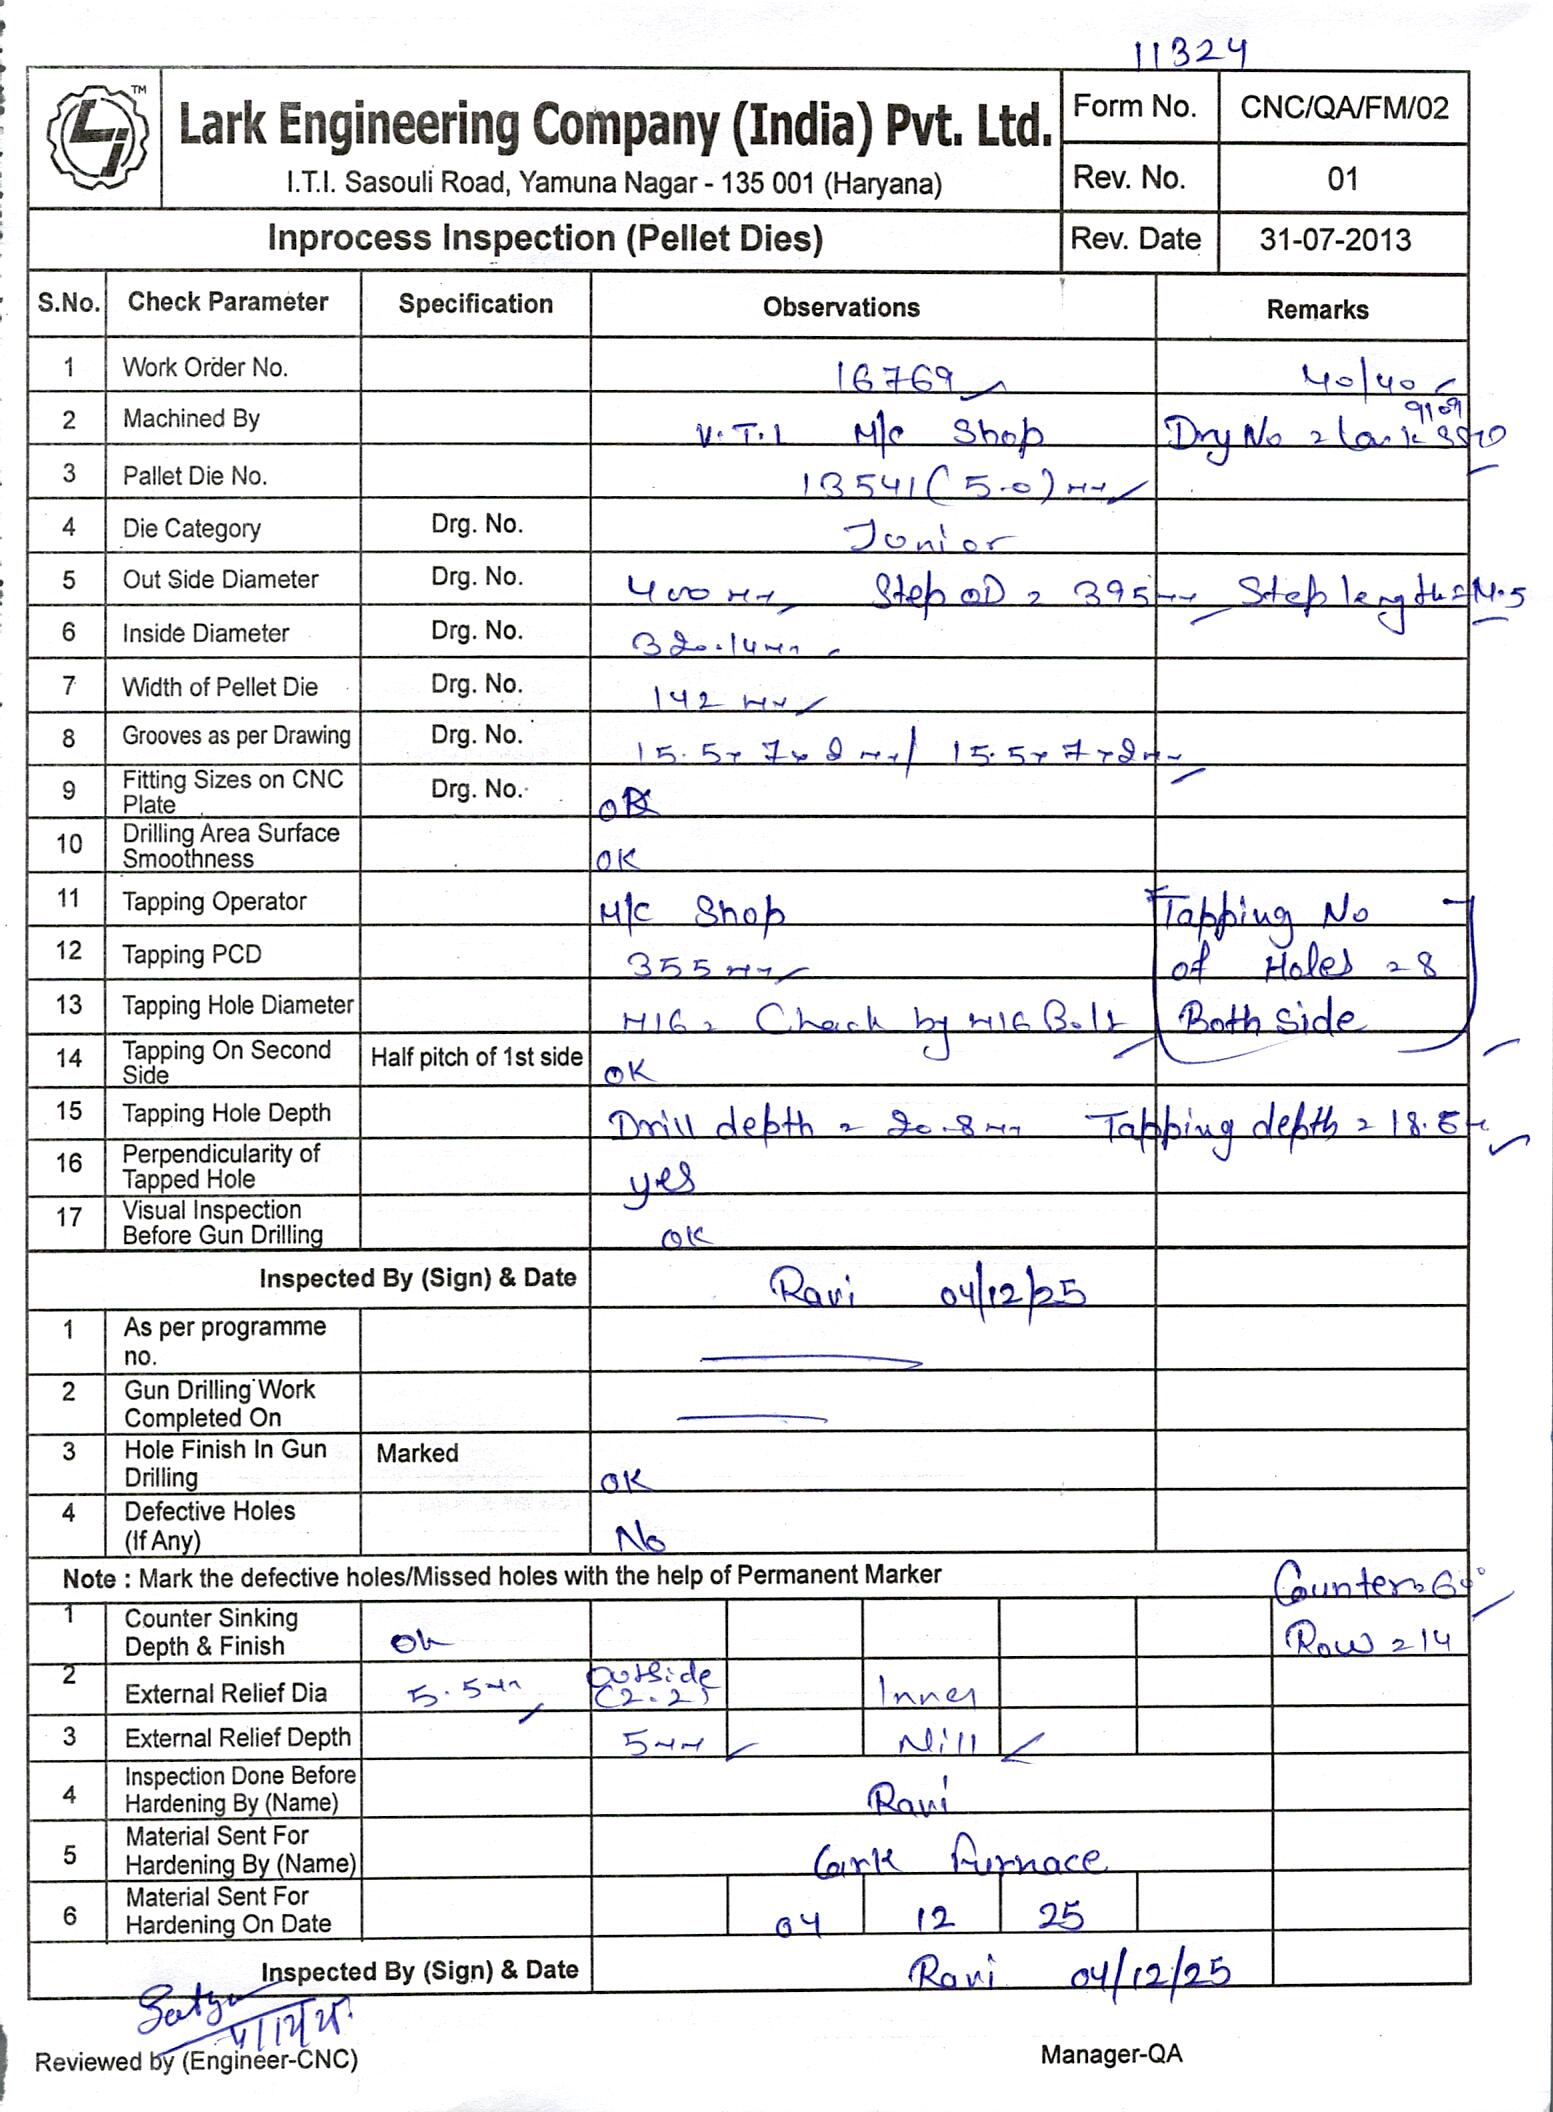 11324
TM
Lark Engineering Company (India) Pvt. Ltd.
I.T.I. Sasouli Road, Yamuna Nagar - 135 001 (Haryana)
Form No. CNC/QA/FM/02
Rev. No. 01
Inprocess Inspection (Pellet Dies) Rev. Date 31-07-2013
S.No. Check Parameter Specification Observations Remarks
1 Work Order No. 16769 40/40
2 Machined By V.T.L M/c Shop Drg No = Lark
3 Pallet Die No. 13541 (5.0) mm
4 Die Category Drg. No. Junior
5 Out Side Diameter Drg. No. 400 mm Step OD = 395 mm Step length =
6 Inside Diameter Drg. No. 320.14 mm
7 Width of Pellet Die Drg. No. 142 mm
8 Grooves as per Drawing Drg. No. 15.5 x 7 x 2 mm / 15.5 x 7 x 2 mm
9 Fitting Sizes on CNC Plate Drg. No. OK
10 Drilling Area Surface Smoothness OK
11 Tapping Operator M/c Shop Tapping No
12 Tapping PCD 355 mm of Holes = 8
13 Tapping Hole Diameter M16 = Check by M16 Bolt Both side
14 Tapping On Second Side Half pitch of 1st side OK
15 Tapping Hole Depth Drill depth = 20.8 mm Tapping depth = 18.5
16 Perpendicularity of Tapped Hole yes
17 Visual Inspection Before Gun Drilling OK
Inspected By (Sign) & Date Ravi 04/12/25
1 As per programme no.
2 Gun Drilling Work Completed On
3 Hole Finish In Gun Drilling Marked OK
4 Defective Holes (If Any) No
Note : Mark the defective holes/Missed holes with the help of Permanent Marker Counter = 60°
1 Counter Sinking Depth & Finish Ok Row = 14
2 External Relief Dia 5.5 mm Outside (2.2) Inner
3 External Relief Depth 5 mm Nill
4 Inspection Done Before Hardening By (Name) Ravi
5 Material Sent For Hardening By (Name) Lark Furnace
6 Material Sent For Hardening On Date 04 12 25
Inspected By (Sign) & Date Ravi 04/12/25
Reviewed by (Engineer-CNC) Manager-QA